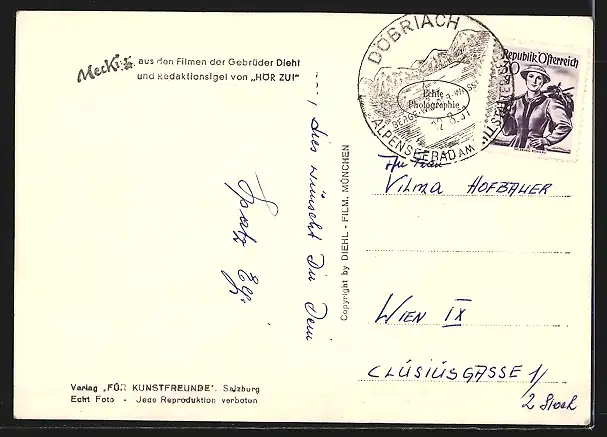 Mecki aus den Filmen der Gebrüder Diehl
und Redaktionsigel von „HÖR ZU!"
..., dies wünscht Dir Dein
Spatz
Verlag „FÜR KUNSTFREUNDE", Salzburg
Echt Foto - Jede Reproduktion verboten
Copyright by DIEHL - FILM, MÜNCHEN
DÖBRIACH
Echte
Photographie
ALPENSEEBAD AM
Republik Österreich
30
An Frau
VILMA HOFBAUER
WIEN IX
CLUSIUSGASSE 1/
2 Stock